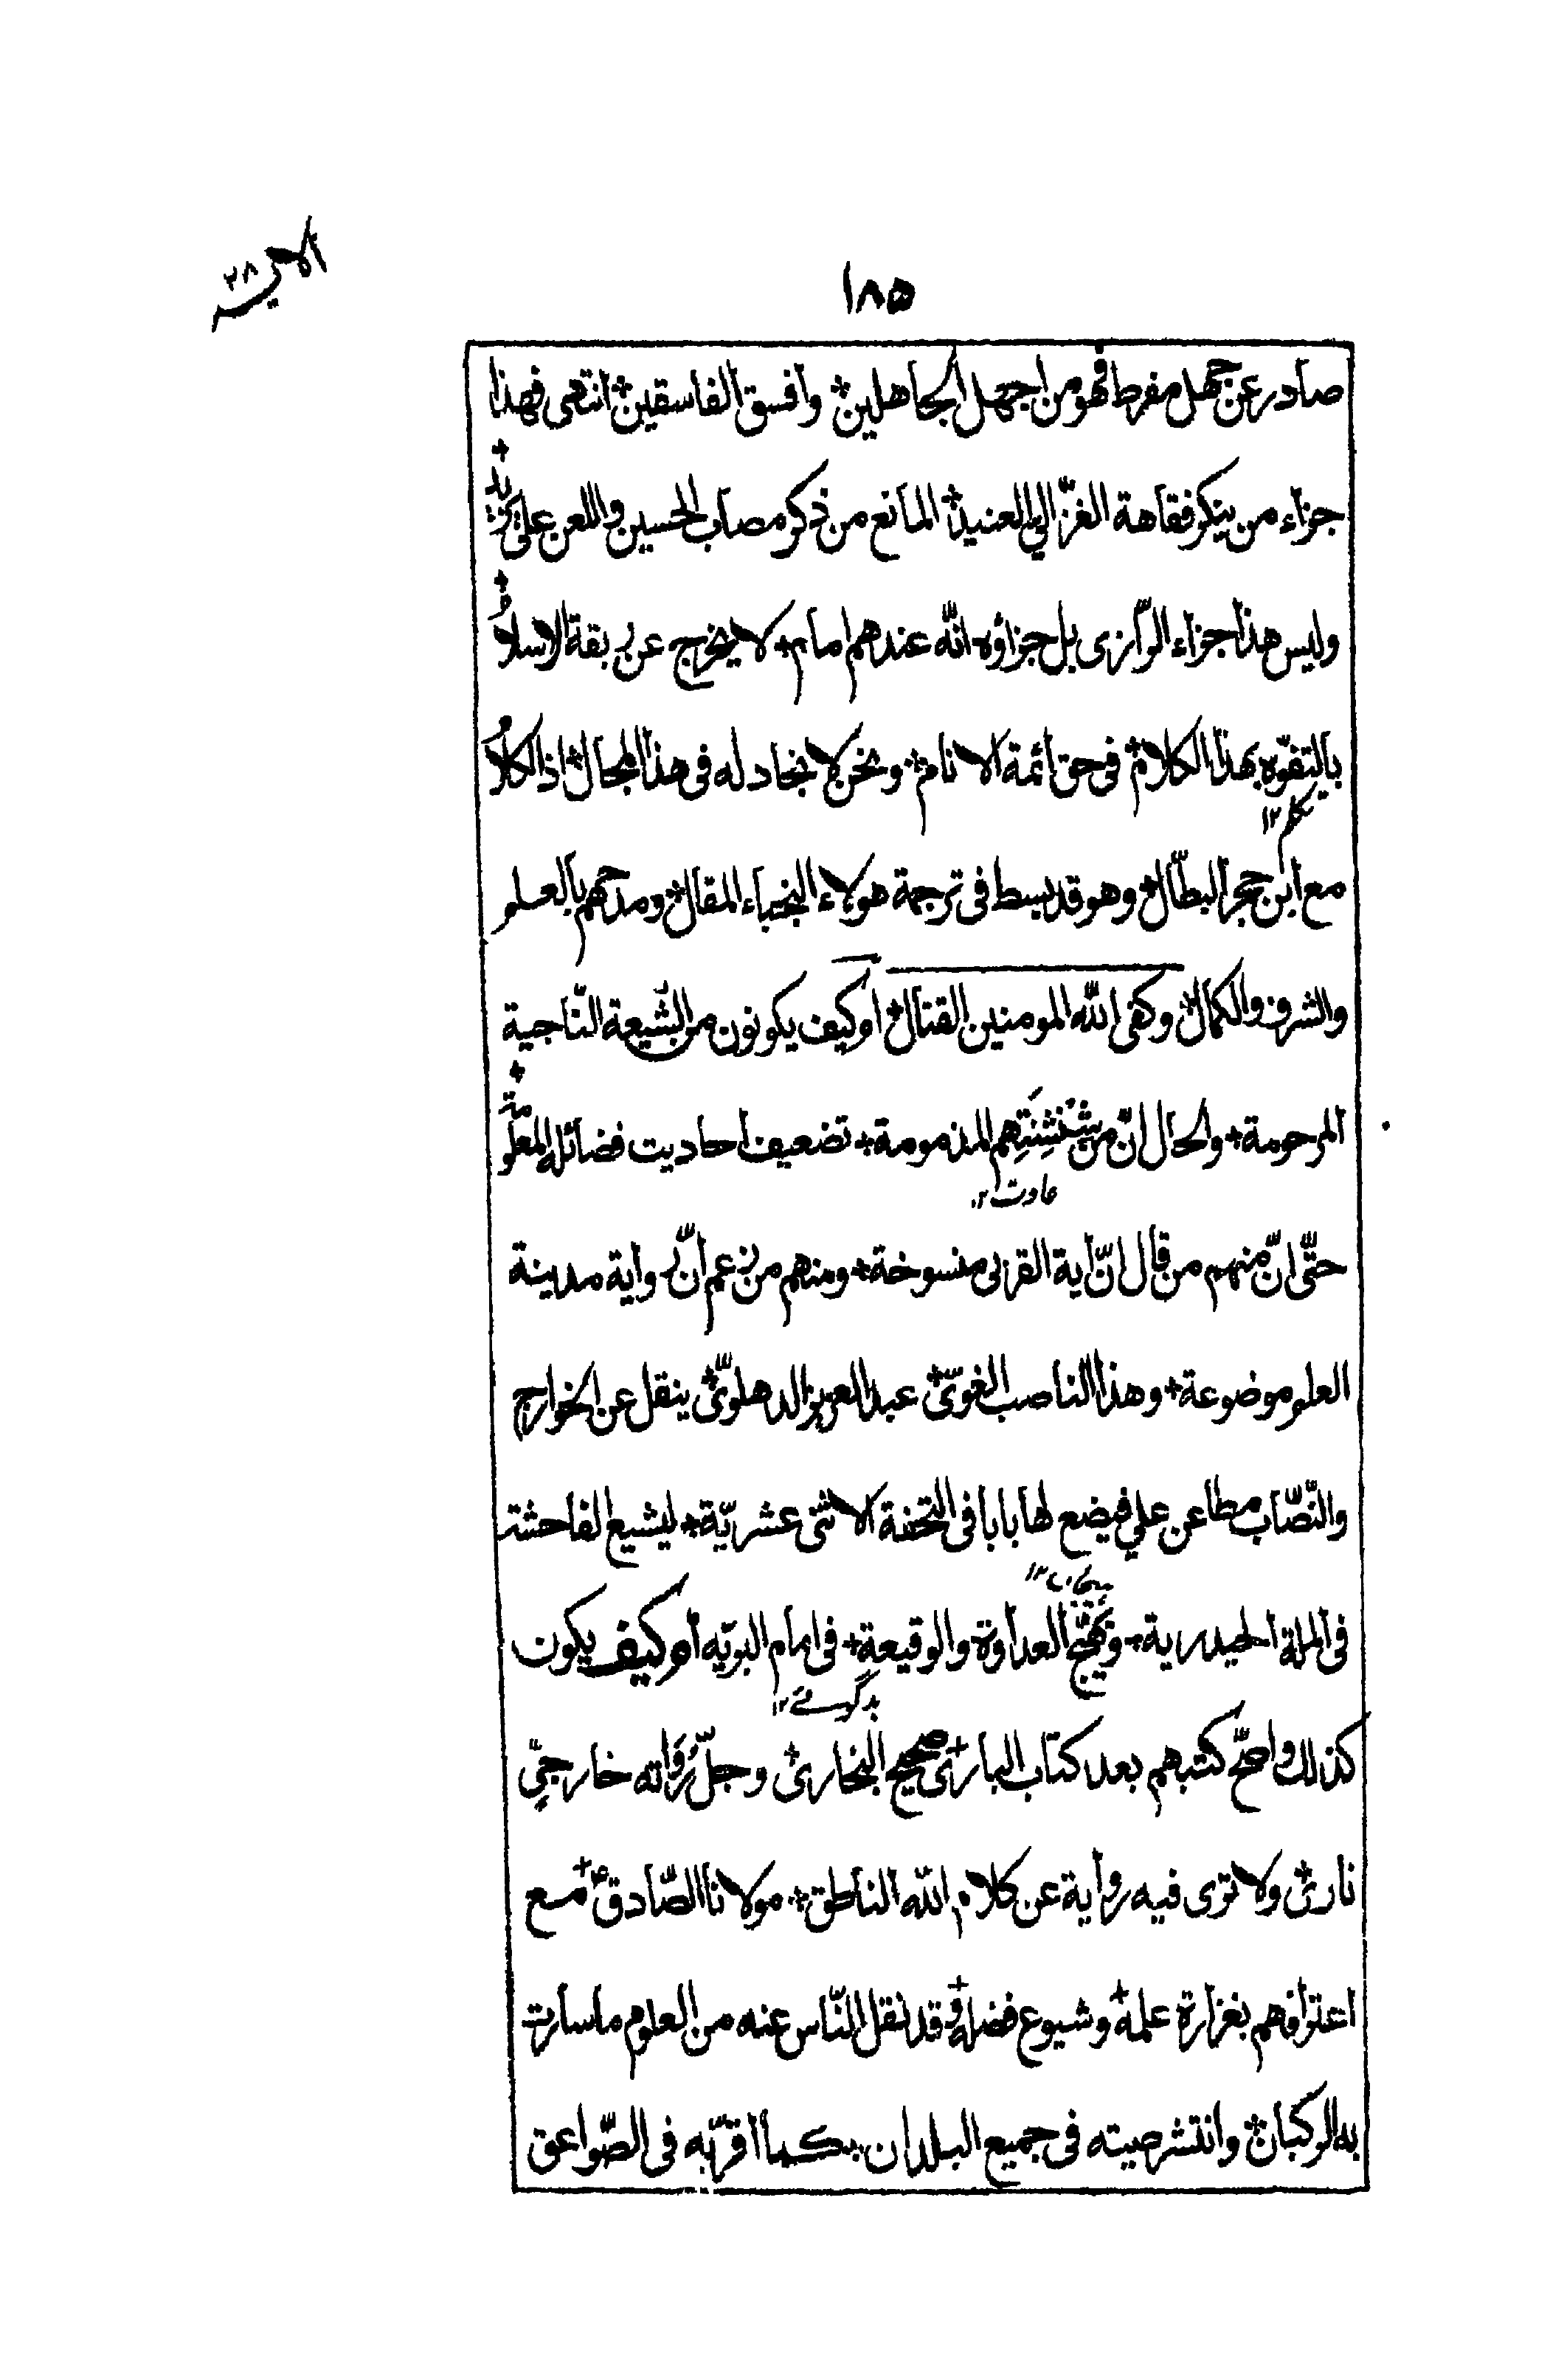 ١٨٥
صادر عن جهل مفرط فهو من اجهل الجاهلين+ وافسق الفاسقين+ انتهى فهذا
جزاء من ينكر فقاهة الغزّالي العنيد+ المانع من ذكر مصاب الحسين واللعن على يزيد+
وليس هذا جزاء الرّازى بل جزاؤه انّه عندهم امام+ لا يخرج عن ربقة الاسلام+
بالتفوّه بهذا الكلام+ فى حق ائمة الانام+ ونحن لا نجادله فى هذا المجال+ اذ الكلامُ
تكلم ١٢
مع ابن حجر البطّال+ وهو قد بسط فى ترجمة هولاء النجباء المقال+ ومدحهم بالعلم
والشرف والكمال+ وكفى الله المومنين القتال+ او كيف يكونون من الشّيعة النّاجية
المرحومة+ والحال انّ من شِنْشِنَتِهم المذمومة+ تضعيف احاديث فضائله المعلومة+
عادت ١٢
حتّى انّ منهم من قال انّ اية القربى منسوخة+ ومنهم من زعم انّ رواية مدينة
العلم موضوعة+ وهذا الناصب الغوىّ+ عبد العزيز الدهلوىّ+ ينقل عن الخوارج
والنّصّاب مطاعن علي فيضع لها بابا فى التحفة الاثنى عشريّة+ ليشيع الفاحشة
فى الملة الحيدرية+ وتهيّج العداوة والوقيعةِ+ فى امام البريّه أم كيف يكون
بدگوئے ١٢
كذلك واصحّ كتبهم بعد كتاب البارى+ صحيح البخارى+ وجلّ رُوَاته خارجيٍّ
نارىّ+ ولا ترى فيه رواية عن كلام الله الناطق+ مولانا الصّادق ع+ مع
اعترافهم بغزارة علمه+ وشيوع فضله+ وقد نقل النّاس عنه من العلوم ما سارت
به الركبان+ وانتشر صيته فى جميع البلدان+ كما اقرّ به فى الصّواعق